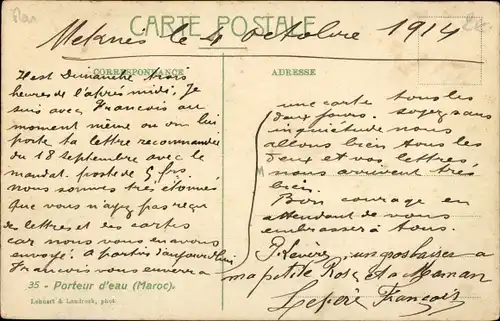 CARTE POSTALE
Meknès le 4 octobre 1914
CORRESPONDANCE
ADRESSE
Il est Dimanche trois
heures de l'après midi. Je
suis avec François au
moment même ou on lui
porte ta lettre recommandée
du 18 septembre avec le
mandat. poste de 5 frs.
nous sommes très étonnés
que vous n'ayez pas reçu
de lettres et des cartes
car nous vous en avons
envoyé. A partir d'aujourd'hui
François vous enverra
une carte tous les
deux jours. soyez sans
inquiétude nous
allons bien tous les
deux et vos lettres
nous arrivent très
bien.
Bon courage en
attendant de vous
embrasser à tous.
un gros baiser a
ma petite Rose et a Maman
François
35 - Porteur d'eau (Maroc).
Lehnert & Landrock, phot.